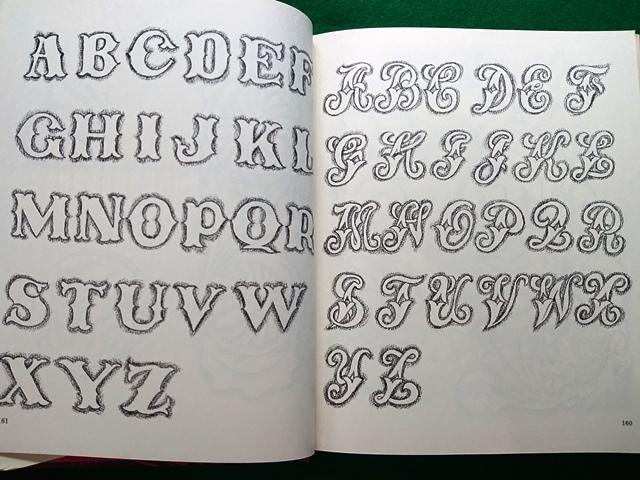 A B C D E F
G H I J K L
M N O P Q R
S T U V W
X Y Z
61
A B C D E F
G H I J K L
M N O P Q R
S T U V W X
Y Z
160